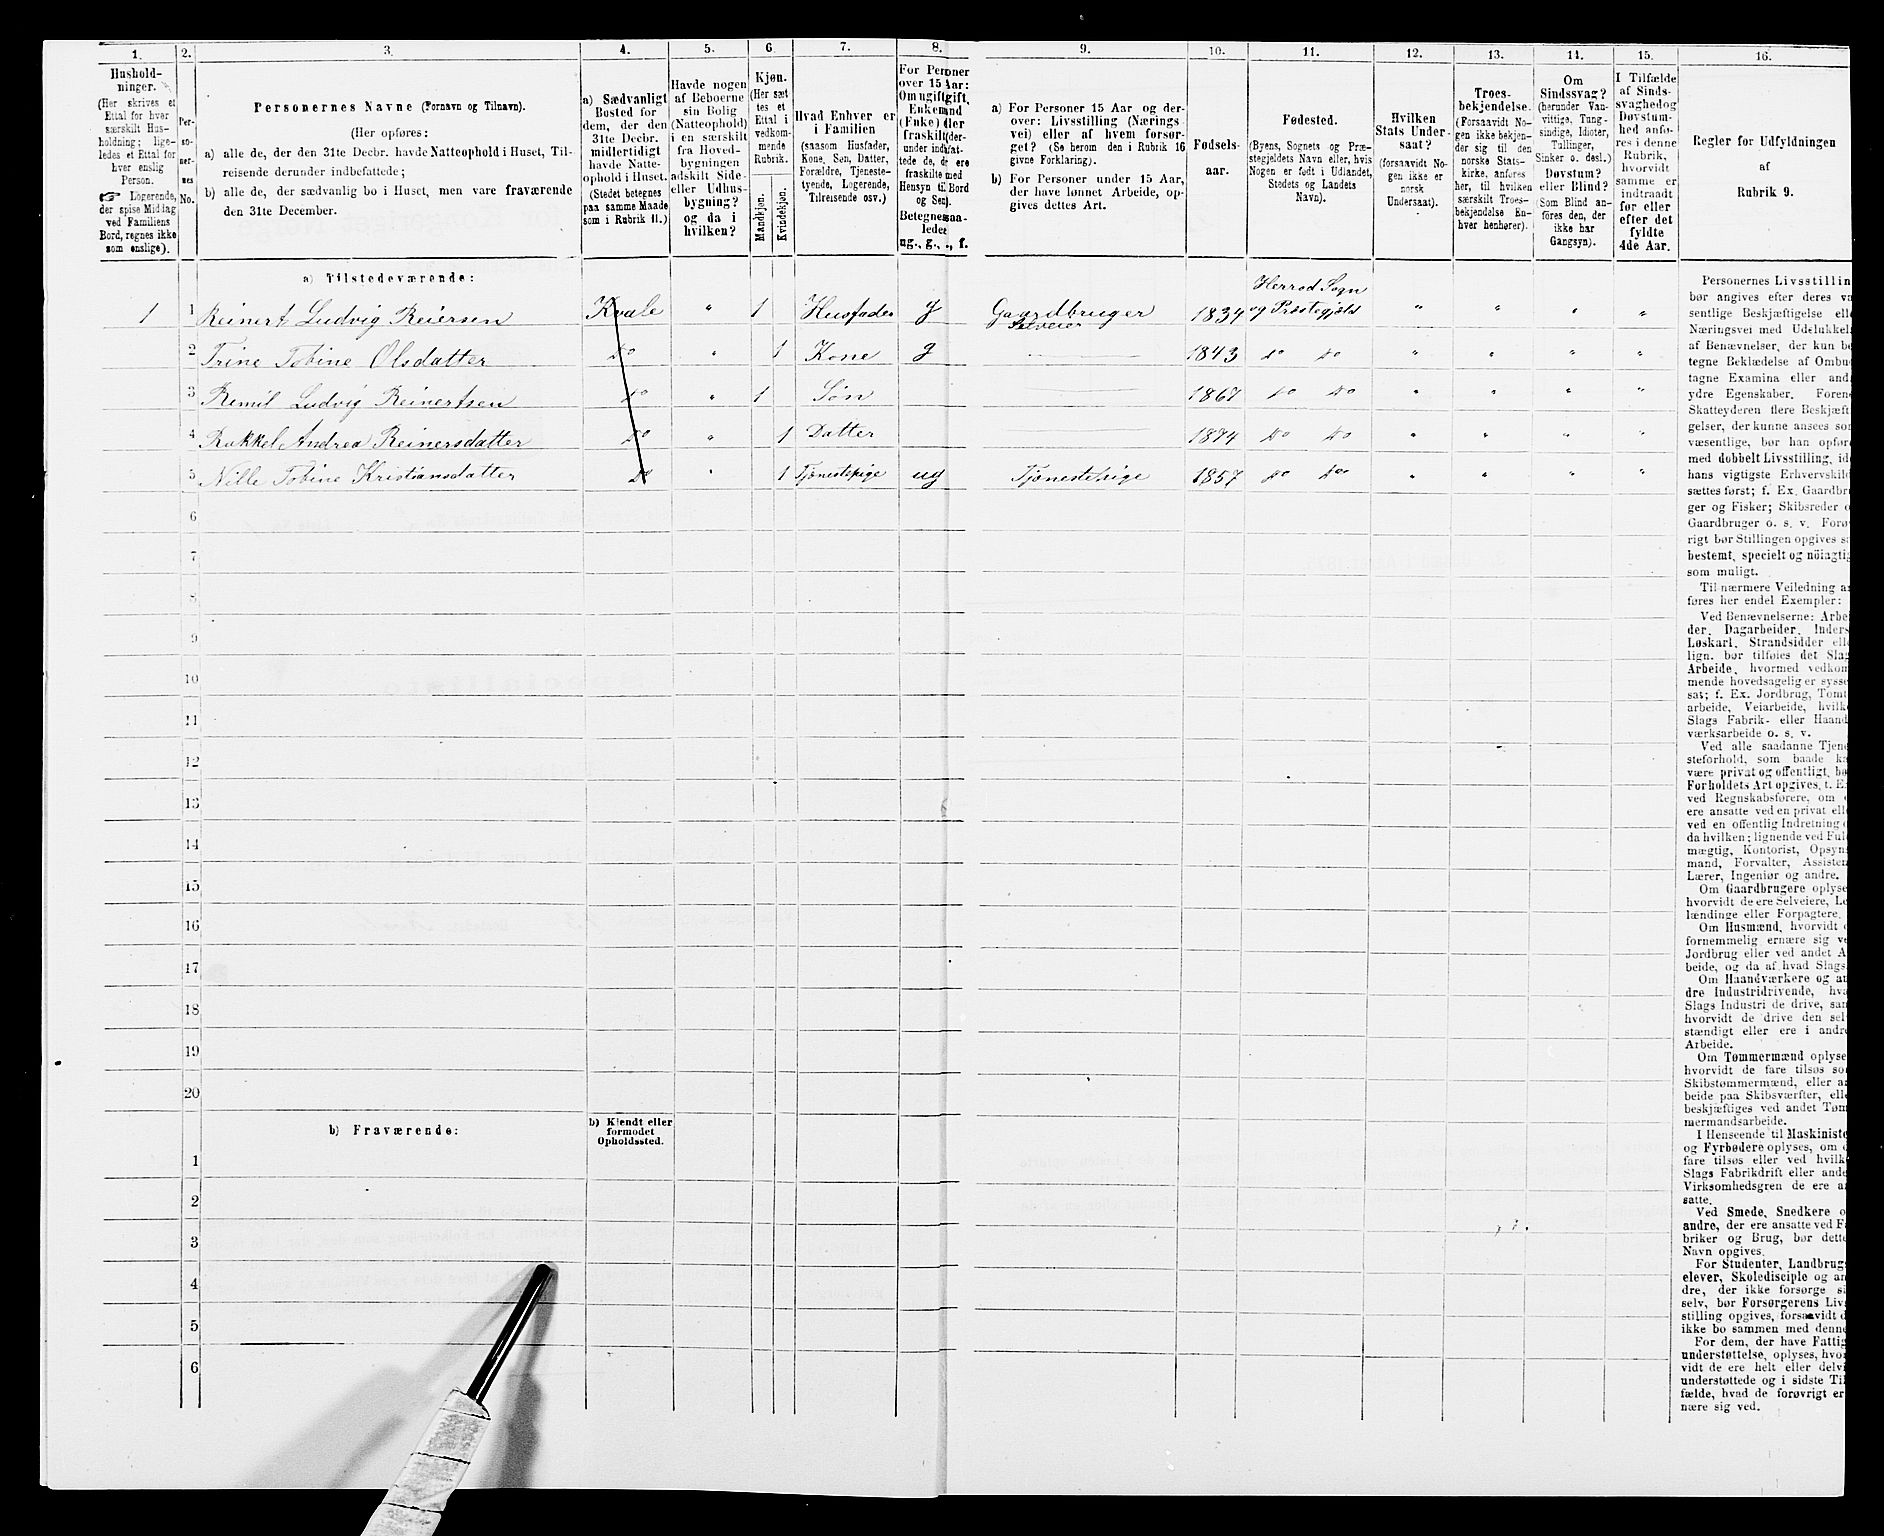 1. 2. 3. 4. 5. 6. 7. 8. 9. 10. 11. 12. 13. 14. 15. 16.
Hushold-
ninger.
(Her skrives et
Ettal for hver
særskilt Hus-
holdning; lige-
ledes et Ettal for
hver enslig
Person.
☞ Logerende,
der spise Middag
ved Familiens
Bord, regnes ikke
som enslige).
Per-
so-
ner-
nes
No.
Personernes Navne (Fornavn og Tilnavn).
(Her opføres:
a) alle de, der den 31te Decbr. havde Natteophold i Huset, Til-
reisende derunder indbefattede;
b) alle de, der sædvanlig bo i Huset, men vare fraværende
den 31te December.
a) Sædvanligt
Bosted for
dem, der den
31te Decbr.
midlertidigt
havde Natte-
ophold i Huset.
(Stedet betegnes
paa samme Maade
som i Rubrik 11.)
Havde nogen
af Beboerne
sin Bolig
(Natteophold)
i en særskilt
fra Hoved-
bygningen
adskilt Side-
eller Udhus-
bygning?
og da i
hvilken?
Kjøn.
(Her sæt
tes et
Ettal i
vedkom-
mende
Rubrik.
Mandkjøn.
Kvindekjøn.
Hvad Enhver er
i Familien
(saasom Husfader,
Kone, Søn, Datter,
Forældre, Tjeneste-
tyende, Logerende,
Tilreisende osv.)
For Personer
over 15 Aar:
Om ugift, gift,
Enkemand
(Enke) eller
fraskilt (der-
under indbefat-
tede de, der ere
fraskilte med
Hensyn til Bord
og Seng).
Betegnes saa-
ledes
ug., g., , f.
a) For Personer 15 Aar og der-
over: Livsstilling (Nærings-
vei) eller af hvem forsør-
get? (Se herom den i Rubrik 16
givne Forklaring).
b) For Personer under 15 Aar,
der have lønnet Arbeide, op-
gives dettes Art.
Fødsels-
aar.
Fødested.
(Byens, Sognets og Præ-
stegjeldets Navn eller, hvis
Nogen er født i Udlandet,
Stedets og Landets
Navn).
Hvilken
Stats Under-
saat?
(forsaavidt No-
gen ikke er
norsk
Undersaat).
Troes-
bekjendelse.
(Forsaavidt No-
gen ikke bekjen-
der sig til den
norske Stats-
kirke, anføres
her, til hvilken
særskilt Troes-
bekjendelse En-
hver henhører).
Om
Sindssvag?
(herunder Van-
vittige, Tung-
sindige, Idioter,
Tullinger,
Sinker o. desl.)
Døvstum?
eller Blind?
(Som Blind an-
føres den, der
ikke har
Gangsyn).
I Tilfælde
af Sinds-
svaghed og
Døvstum-
hed anfø-
res i denne
Rubrik,
hvorvidt
samme er
indtraadt
før eller
efter det
fyldte
4de Aar.
Regler for Udfyldningen
af
Rubrik 9.
a) Tilstedeværende:
1 1 Reinert Ludvig Reiersen Kvale " 1 Husfader g Gaardbruger Selveier 1834 Herrad Sogn og Præstegjeld " " " "
2 Trine Tobine Olsdatter do " 1 Kone g 1843 do do " " " "
3 Remil Ludvig Reinertsen do " 1 Søn 1867 do do " " " "
4 Rakkel Andrea Reinersdatter do " 1 Datter 1874 do do " " " "
5 Nille Tobine Kristiansdatter do " 1 Tjenestepige ug Tjenestepige 1857 do do " " " "
6
7
8
9
10
11
12
13
14
15
16
17
18
19
20
b) Fraværende:
b) Kjendt eller
formodet
Opholdssted.
1
2
3
4
5
6
Personernes Livsstillin
bør angives efter deres va
sentlige Beskjæftigelse elle
Næringsvei med Udelukkel
af Benævnelser, der kun be
tegne Beklædelse af Ombu
tagne Examina eller and
ydre Egenskaber. Foren
Skatteyderen flere Beskjæft
gelser, der kunne ansees som
væsentlige, bør han opføre
med dobbelt Livsstilling, id
hans vigtigste Erhvervskild
sættes først; f. Ex. Gaardbru
ger og Fisker; Skibsreder o
Gaardbruger o. s. v. Forø
rigt bør Stillingen opgives sa
bestemt, specielt og nöiagtig
som muligt.
Til nærmere Veiledning an
føres her endel Exempler:
Ved Benævnelserne: Arbei
der, Dagarbeider, Inders
Løskarl, Strandsidder elle
lign. bør tilføies det Slag
Arbeide, hvormed vedkom
mende hovedsagelig er sysse
sat; f. Ex. Jordbrug, Tomt
arbeide, Veiarbeide, hvilke
Slags Fabrik- eller Haand
værksarbeide o. s. v.
Ved alle saadanne Tjene
steforhold, som baade ka
være privat og offentligt, bø
Forholdets Art opgives, t. E
ved Regnskabsførere, om
ere ansatte ved en privat elle
ved en offentlig Indretning
da hvilken; lignende ved Ful
mægtig, Kontorist, Opsyns
mand, Forvalter, Assisten
Lærer, Ingeniør og andre.
Om Gaardbrugere oplyse
hvorvidt de ere Selveiere, Le
lændinge eller Forpagtere.
Om Husmænd, hvorvidt
fornemmelig ernære sig ve
Jordbrug eller ved andet A
beide, og da af hvad Slags.
Om Haandværkere og an
dre Industridrivende, hva
Slags Industri de drive, sam
hvorvidt de drive den sel
stændigt eller ere i andre
Arbeide.
Om Tømmermænd oplyse
hvorvidt de fare tilsøs som
Skibstømmermænd, eller ar
beide paa Skibsværfter, elle
beskjæftiges ved andet Tøm
mermandsarbeide.
I Henseende til Maskiniste
og Fyrbødere oplyses, om
fare tilsøs eller ved hvilke
Slags Fabrikdrift eller ande
Virksomhedsgren de ere an
satte.
Ved Smede, Snedkere o
andre, der ere ansatte ved Fa
briker og Brug, bør dette
Navn opgives.
For Studenter, Landbrugs
elever, Skoledisciple og an
dre, der ikke forsørge si
selv, bør Forsørgerens Liv
stilling opgives, forsaavidt d
ikke bo sammen med denne
For dem, der have Fattig
understøttelse, oplyses, hvor
vidt de ere helt eller delvi
understøttede og i sidste Til
fælde, hvad de forøvrigt er
nære sig ved.